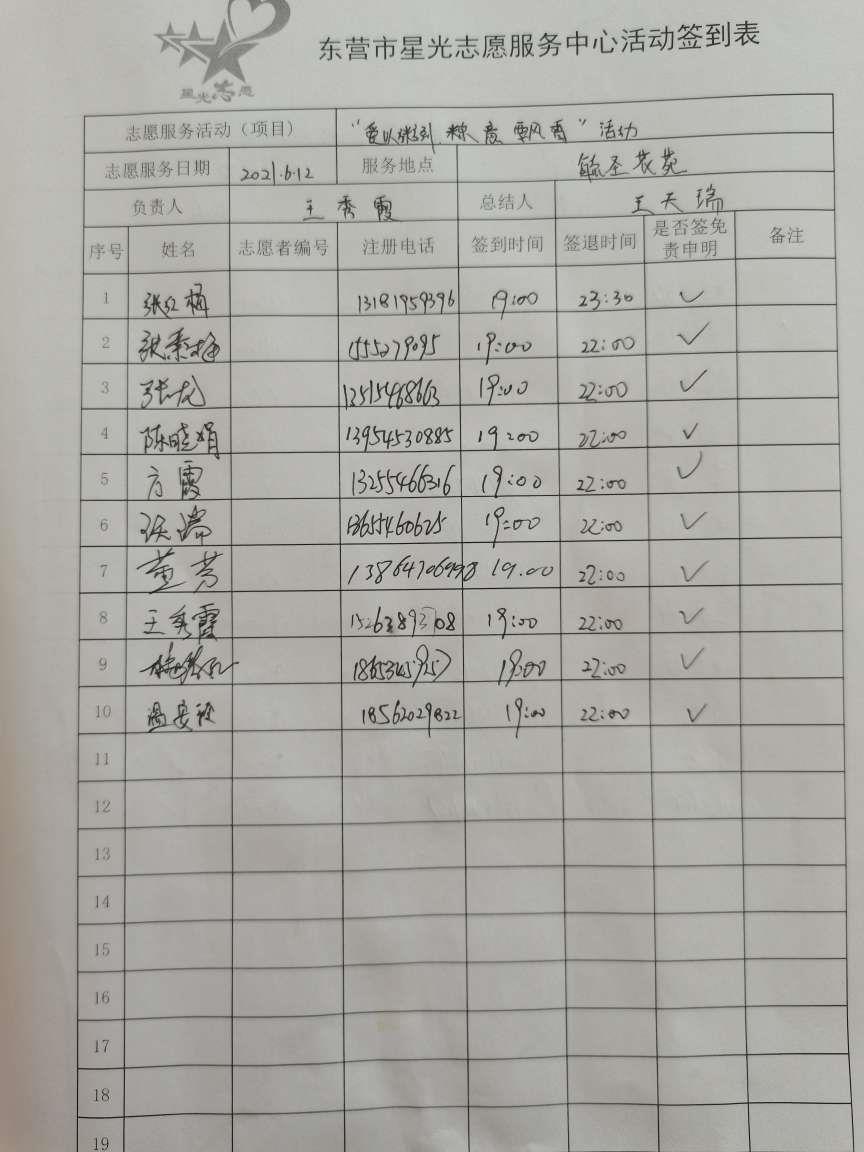 星光志愿
东营市星光志愿服务中心活动签到表
志愿服务活动（项目） 粽 意 飘香”活动
志愿服务日期 2021.6.12 服务地点 毓圣花苑
负责人 王秀霞 总结人 王天瑞
序号 姓名 志愿者编号 注册电话 签到时间 签退时间 是否签免责申明 备注
1 张红梅 13181959396 19:00 23:30 ✓
2 张秀梅 1555279095 19:00 22:00 ✓
3 张龙 13515468663 19:00 22:00 ✓
4 陈晓娟 13954530885 19:00 22:00 ✓
5 方霞 13255466316 19:00 22:00 ✓
6 瑞 18655460625 19:00 22:00 ✓
7 董芳 13864706998 19.00 22:00 ✓
8 王秀霞 15263893708 19:00 22:00 ✓
9 19:00 22:00 ✓
10 18562029822 19:00 22:00 ✓
11
12
13
14
15
16
17
18
19